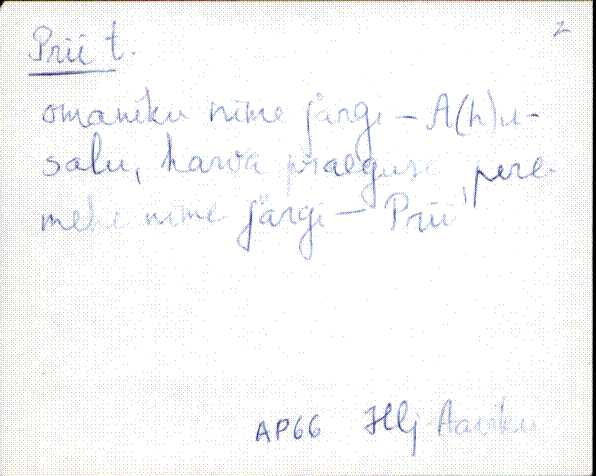 2
Prii t.
omaniku nime järgi – A(h)u-
salu, harva praeguse pere-
mehe nime järgi – Prii
AP66 Hlj Aaviku